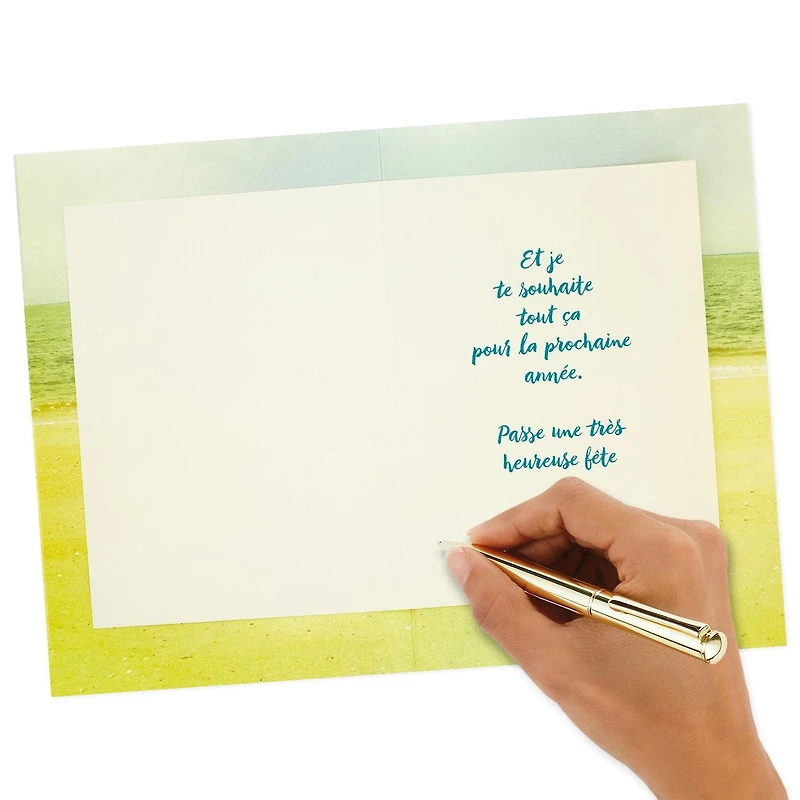 Et je
te souhaite
tout ça
pour la prochaine
année.
Passe une très
heureuse fête